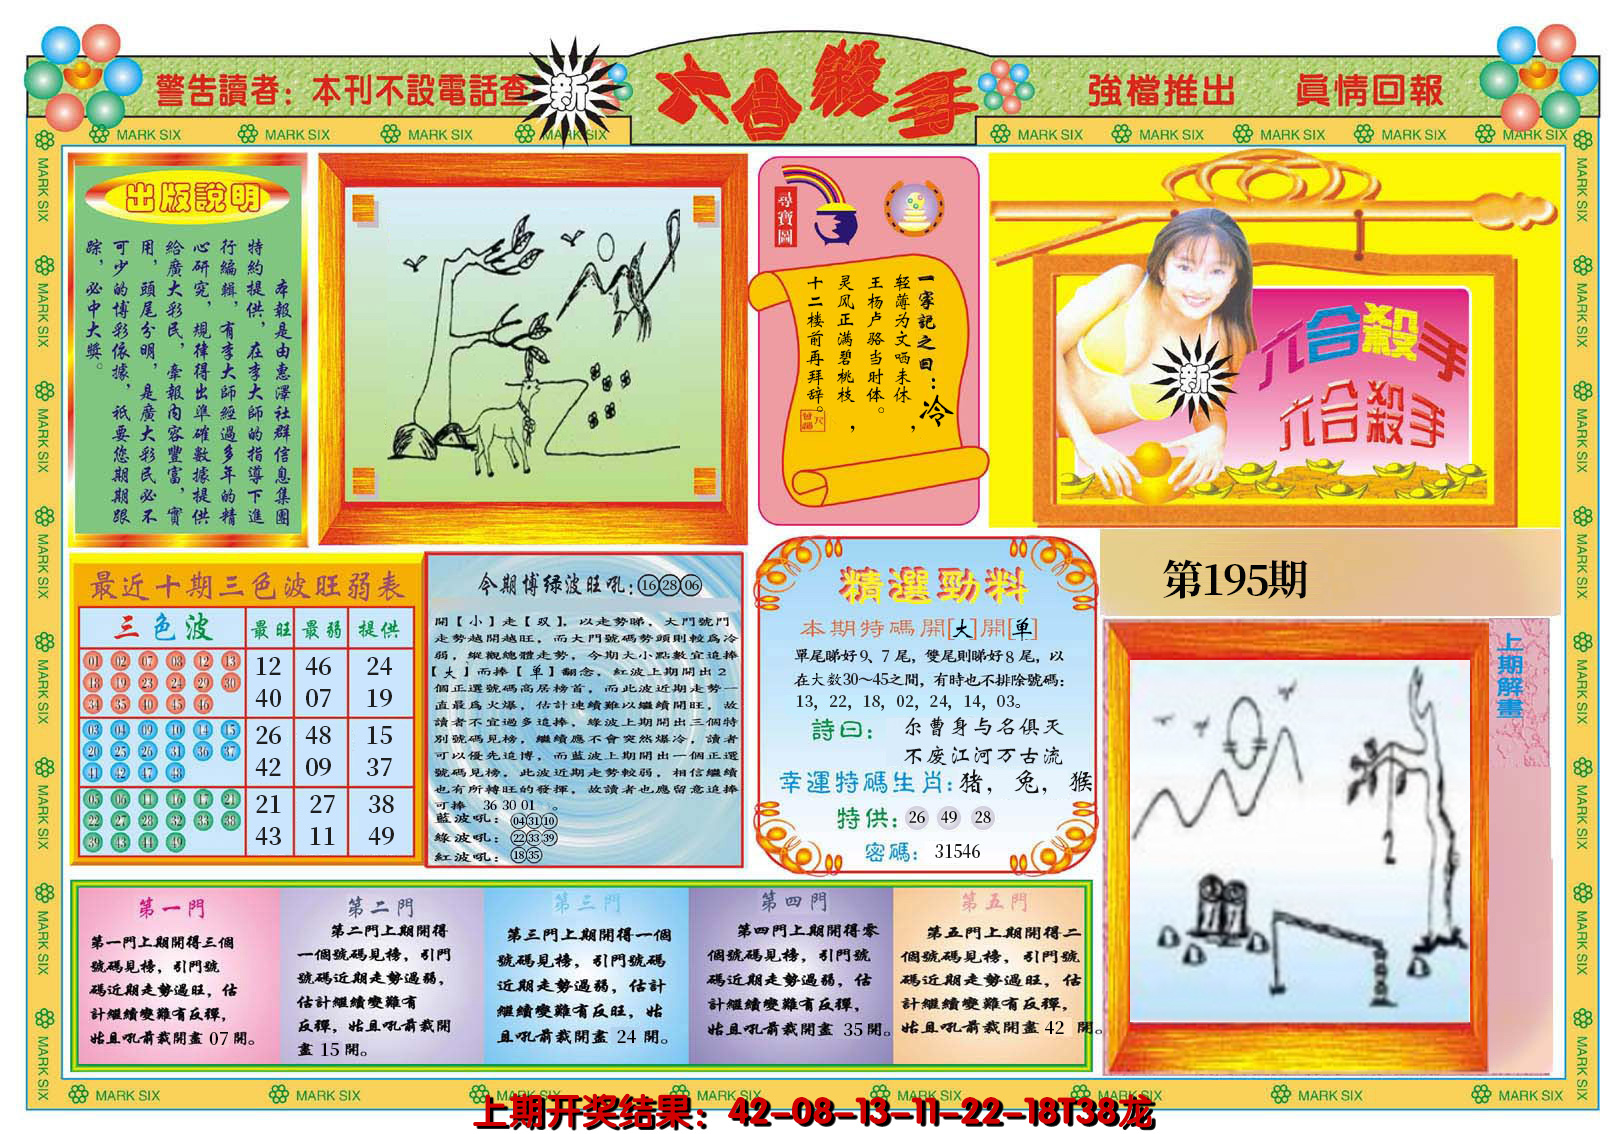 警告讀者：本刊不設電話查
新
六合殺手
強檔推出　真情回報
MARK SIX
出版說明
本報是由惠澤社群信息集團
特約提供，在李大師的指導下進
行編輯，有李大師經過多年的精
心研究，規律得出準確數據提供
給廣大彩民，牽報內容豐富，實
用，頭尾分明，是廣大彩民必不
可少的博彩依據，祇要您期期跟
踪，必中大獎。
尋寶圖
一家記之曰：冷
轻薄为文哂未休，
王杨卢骆当时体。
灵风正满碧桃枝，
十二楼前再拜辞。
新
六合殺手
六合殺手
第195期
上期解畫
最近十期三色波旺弱表
三色波 最旺 最弱 提供
01 02 07 08 12 13
18 19 23 24 29 30
34 35 40 45 46
12 46 24
40 07 19
03 04 09 10 14 15
20 25 26 31 36 37
41 42 47 48
26 48 15
42 09 37
05 06 11 16 17 21
22 27 28 32 33 38
39 43 44 49
21 27 38
43 11 49
今期博绿波旺吼：16 28 06
開【小】走【双】，以走勢睇，大門號門
走勢越開越旺，而大門號碼勢頭則較爲冷
弱，縱觀總體走勢，今期大小點數宜追捧
【大】而捧【单】翻念，紅波上期開出2
個正選號碼高居榜首，而此波近期走勢一
直最爲火爆，估計連續難以繼續開旺，故
讀者不宜過多追捧，綠波上期開出三個特
別號碼見榜，繼續應不會突然爆冷，讀者
可以優先追博，而藍波上期開出一個正選
號碼見榜，此波近期走勢較弱，相信繼續
也有所轉旺的發揮，故讀者也應留意追捧
可捧 36 30 01 。
藍波吼：04 31 10
綠波吼：22 33 39
紅波吼：18 35
精選勁料
本期特碼開[大]開[单]
單尾睇好9、7尾，雙尾則睇好8尾，以
在大数30～45之間，有時也不排除號碼：
13, 22, 18, 02, 24, 14, 03。
詩曰：尔曹身与名俱灭
不废江河万古流
幸運特碼生肖：猪，兔，猴
特供：26 49 28
密碼：31546
第一門
第一門上期開得三個
號碼見榜，引門號
碼近期走勢過旺，估
計繼續變難有反彈，
姑且吼前裁開盡 07 開。
第二門
第二門上期開得
一個號碼見榜，引門
號碼近期走勢過弱，
估計繼續變難有
反彈，姑且吼前裁開
盡 15 開。
第三門
第三門上期開得一個
號碼見榜，引門號碼
近期走勢過弱，估計
繼續變難有反旺，姑
且吼前裁開盡 24 開。
第四門
第四門上期開得零
個號碼見榜，引門號
碼近期走勢過弱，估
計繼續變難有反彈，
姑且吼前裁開盡 35 開。
第五門
第五門上期開得二
個號碼見榜，引門號
碼近期走勢過旺，估
計繼續變難有反彈，
姑且吼前裁開盡 42 開。
上期开奖结果：42-08-13-11-22-18T38龙